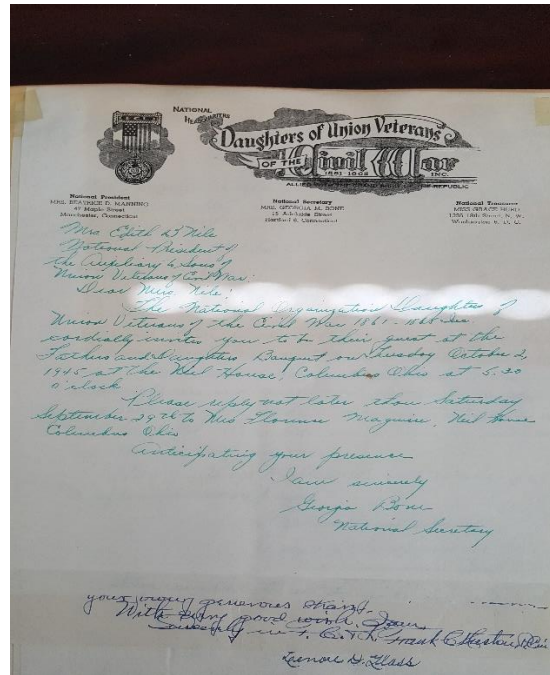 NATIONAL
HEADQUARTERS
Daughters of Union Veterans
OF THE Civil War
1861 1865 INC.
National President
MRS. BEATRICE D. MANNING
47 Maple Street
Manchester, Connecticut
National Secretary
MRS. GEORGIA M. BONE
15 Street
Hartford 5, Connecticut
National Treasurer
MISS GRACE HURD
18th Street, N. W.
Washington 9, D. C.
Mrs Edith D. Nile
National President of
the Auxiliary to Sons of
Union Veterans of Civil War:
Dear Mrs. Nile:
The National Organization Daughters of
Union Veterans of the Civil War 1861-1865 Inc
cordially invites you to be their guest at the
Fathers and Daughters Banquet on Tuesday October 2,
1945 at the Neil House, Columbus Ohio at 5.30
o'clock
Please reply not later than Saturday
September 29th to Mrs Maguire, Neil House
Columbus Ohio
Anticipating your presence
I am sincerely
Georgia Bone
National Secretary
your very generous
With every good wish, I am
Sincerely in F. C. & L. Frank C.
D. Glass